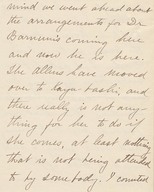 mind we went ahead about
the arrangements for Dr
Barnum's coming here
and now he is here.
The Allens have moved
over to
there really is not any-
thing for her to do if
she comes, at least nothing
that is not being attended
to by somebody. I counted